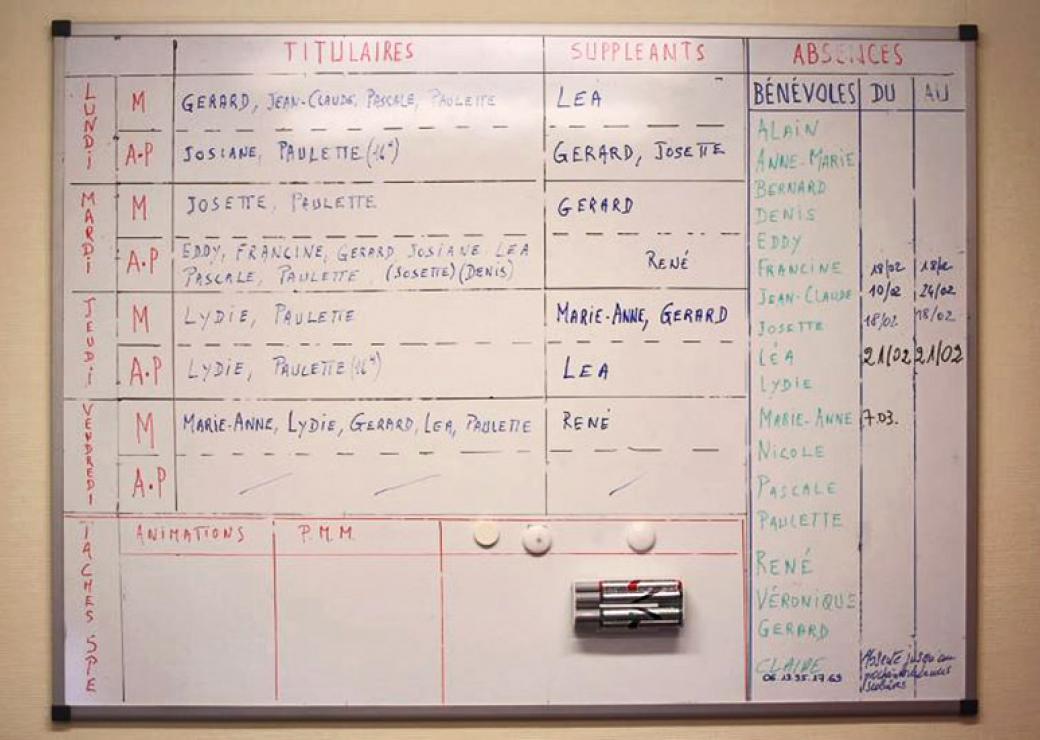 TITULAIRES SUPPLEANTS ABSENCES
BÉNÉVOLES DU AU
LUNDI M GERARD, JEAN-CLAUDE, PASCALE, PAULETTE LEA
A.P JOSIANE, PAULETTE (16H) GERARD, JOSETTE
MARDI M JOSETTE, PAULETTE GERARD
A.P EDDY, FRANCINE, GERARD JOSIANE LEA
PASCALE, PAULETTE (JOSETTE) (DENIS) RENÉ
JEUDI M LYDIE, PAULETTE MARIE-ANNE, GERARD
A.P LYDIE, PAULETTE (16H) LEA
VENDREDI M MARIE-ANNE, LYDIE, GERARD, LEA, PAULETTE RENÉ
A.P
TACHES SPE ANIMATIONS P.M.M.
ALAIN
ANNE-MARIE
BERNARD
DENIS
EDDY
FRANCINE 18/02
JEAN-CLAUDE 10/02 24/02
JOSETTE 18/02 18/02
LÉA 21/02 21/02
LYDIE
MARIE-ANNE 7.03.
NICOLE
PASCALE
PAULETTE
RENÉ
VÉRONIQUE
GERARD
CLAIRE Absente jusqu'au
scolaires